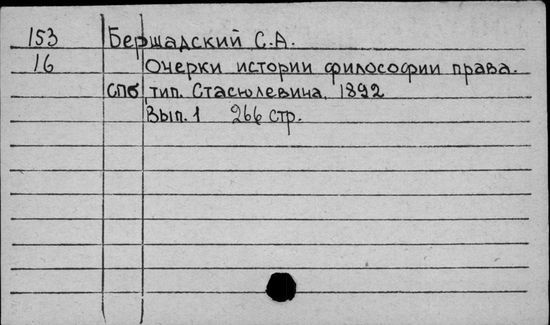 153 Бершадский С.А.
16 Очерки истории философии права.
СПб тип. Стасюлевича, 1892
Вып. 1 266 стр.